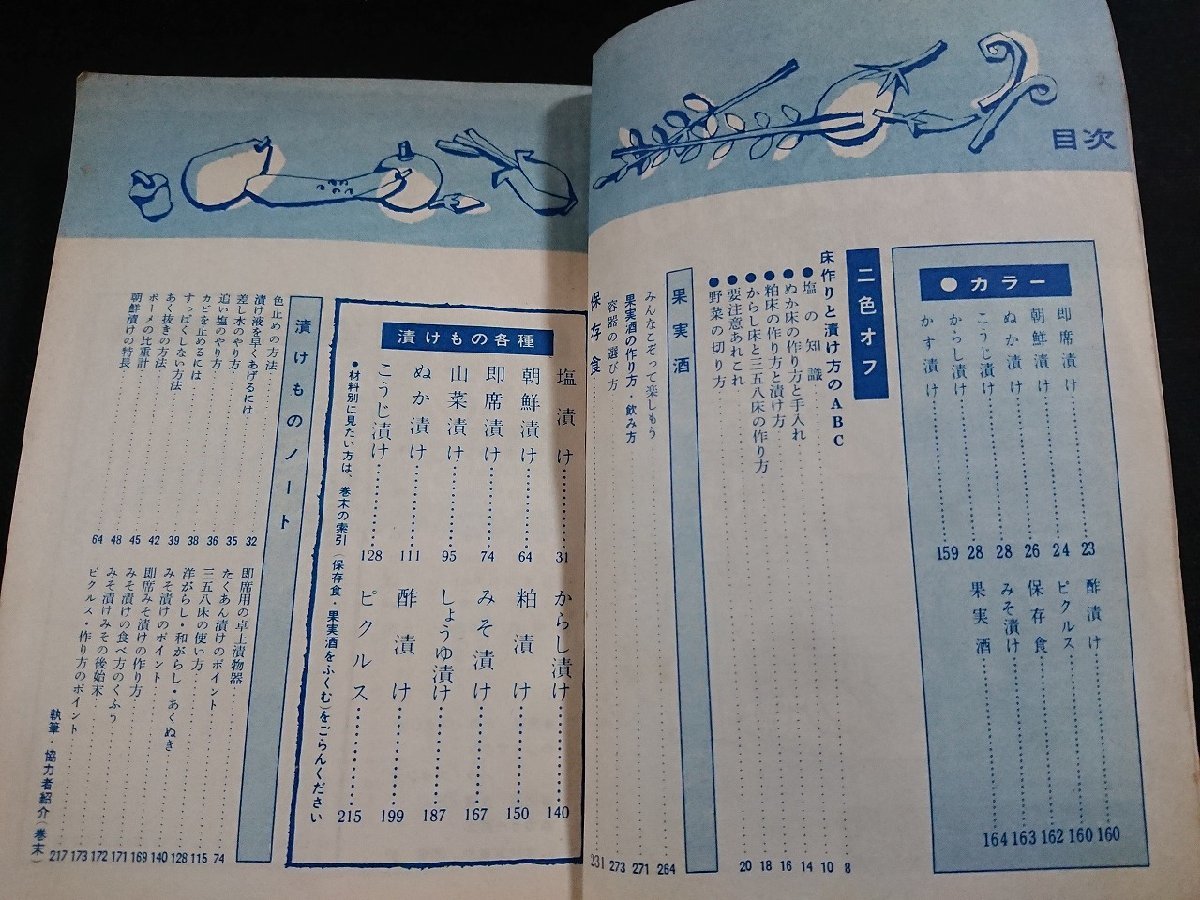 目次
●カラー
即席漬け 23
朝鮮漬け 24
ぬか漬け 26
こうじ漬け 28
からし漬け 28
かす漬け 159
酢漬け 160
ピクルス 160
保存食 162
みそ漬け 163
果実酒 164
二色オフ
床作りと漬け方のABC
●塩の知識 8
●ぬか床の作り方と手入れ 10
●粕床の作り方と漬け方 14
●からし床と三五八床の作り方 16
●要注意あれこれ 18
●野菜の切り方 20
果実酒
みんなこぞって楽しもう 264
果実酒の作り方・飲み方 271
容器の選び方 273
保存食 231
漬けもの各種
塩漬け 31
朝鮮漬け 64
即席漬け 74
山菜漬け 95
ぬか漬け 111
こうじ漬け 128
からし漬け 140
粕漬け 150
みそ漬け 167
しょうゆ漬け 187
酢漬け 199
ピクルス 215
●材料別に見たい方は、巻末の索引(保存食・果実酒をふくむ)をごらんください
漬けものノート
色止めの方法 32
漬け液を早くあげるには 35
差し水のやり方 36
追い塩のやり方 38
カビを止めるには 39
すっぱくしない方法 42
あく抜きの方法 45
ボーメの比重計 48
朝鮮漬けの特長 64
即席用の卓上漬物器 74
たくあん漬けのポイント 115
三五八床の使い方 128
洋がらし・和がらし・あくぬき 140
みそ漬けのポイント 169
即席みそ漬けの作り方 171
みそ漬けの食べ方のくふう 172
みそ漬けみその後始末 173
ピクルス・作り方のポイント 217
執筆・協力者紹介(巻末)